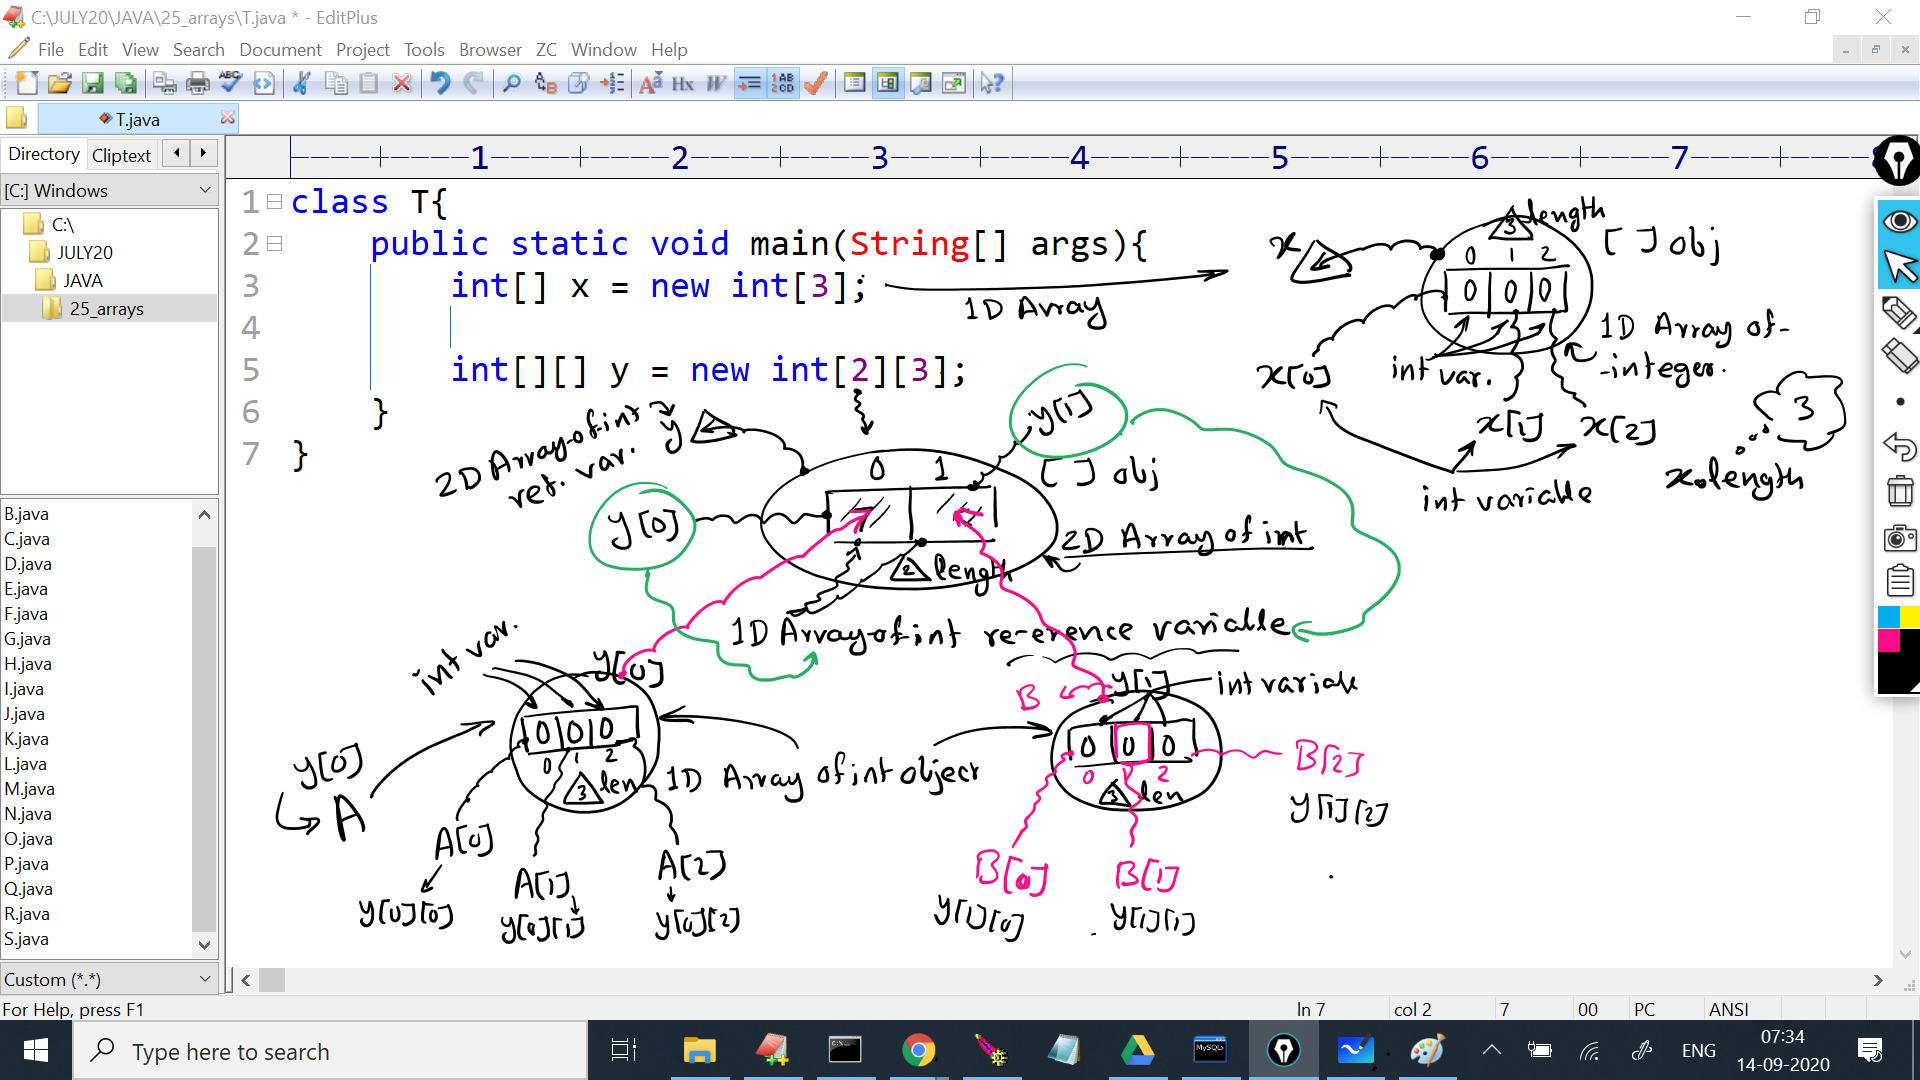 C:\JULY20\JAVA\25_arrays\T.java * - EditPlus
File Edit View Search Document Project Tools Browser ZC Window Help
T.java
Directory Cliptext
[C:] Windows
C:\
JULY20
JAVA
25_arrays
B.java
C.java
D.java
E.java
F.java
G.java
H.java
I.java
J.java
K.java
L.java
M.java
N.java
O.java
P.java
Q.java
R.java
S.java
Custom (*.*)
1 2 3 4 5 6 7
1 class T{
2 public static void main(String[] args){
3 int[] x = new int[3];
4
5 int[][] y = new int[2][3];
6 }
7 }
1D Array
x
3 length
[ ] obj
0 1 2
0 0 0
1D Array of-
-integer.
int var.
x[0]
x[1] x[2]
int variable
3
x.length
2D Array-of-int
ref. var.
y
y[1]
0 1
[ ] obj
y[0]
2D Array of int
2 length
1D Array-of-int re-erence variable
int var.
y[0]
0 0 0
0 1 2
3 len
y[0]
A
1D Array of int object
B
y[1]
int variable
0 0 0
0 1 2
3 len
B[2]
y[1][2]
A[0]
A[1]
A[2]
y[0][0]
y[0][1]
y[0][2]
B[0]
B[1]
y[1][0]
y[1][1]
For Help, press F1
ln 7 col 2 7 00 PC ANSI
Type here to search
MySQL
ENG
07:34
14-09-2020